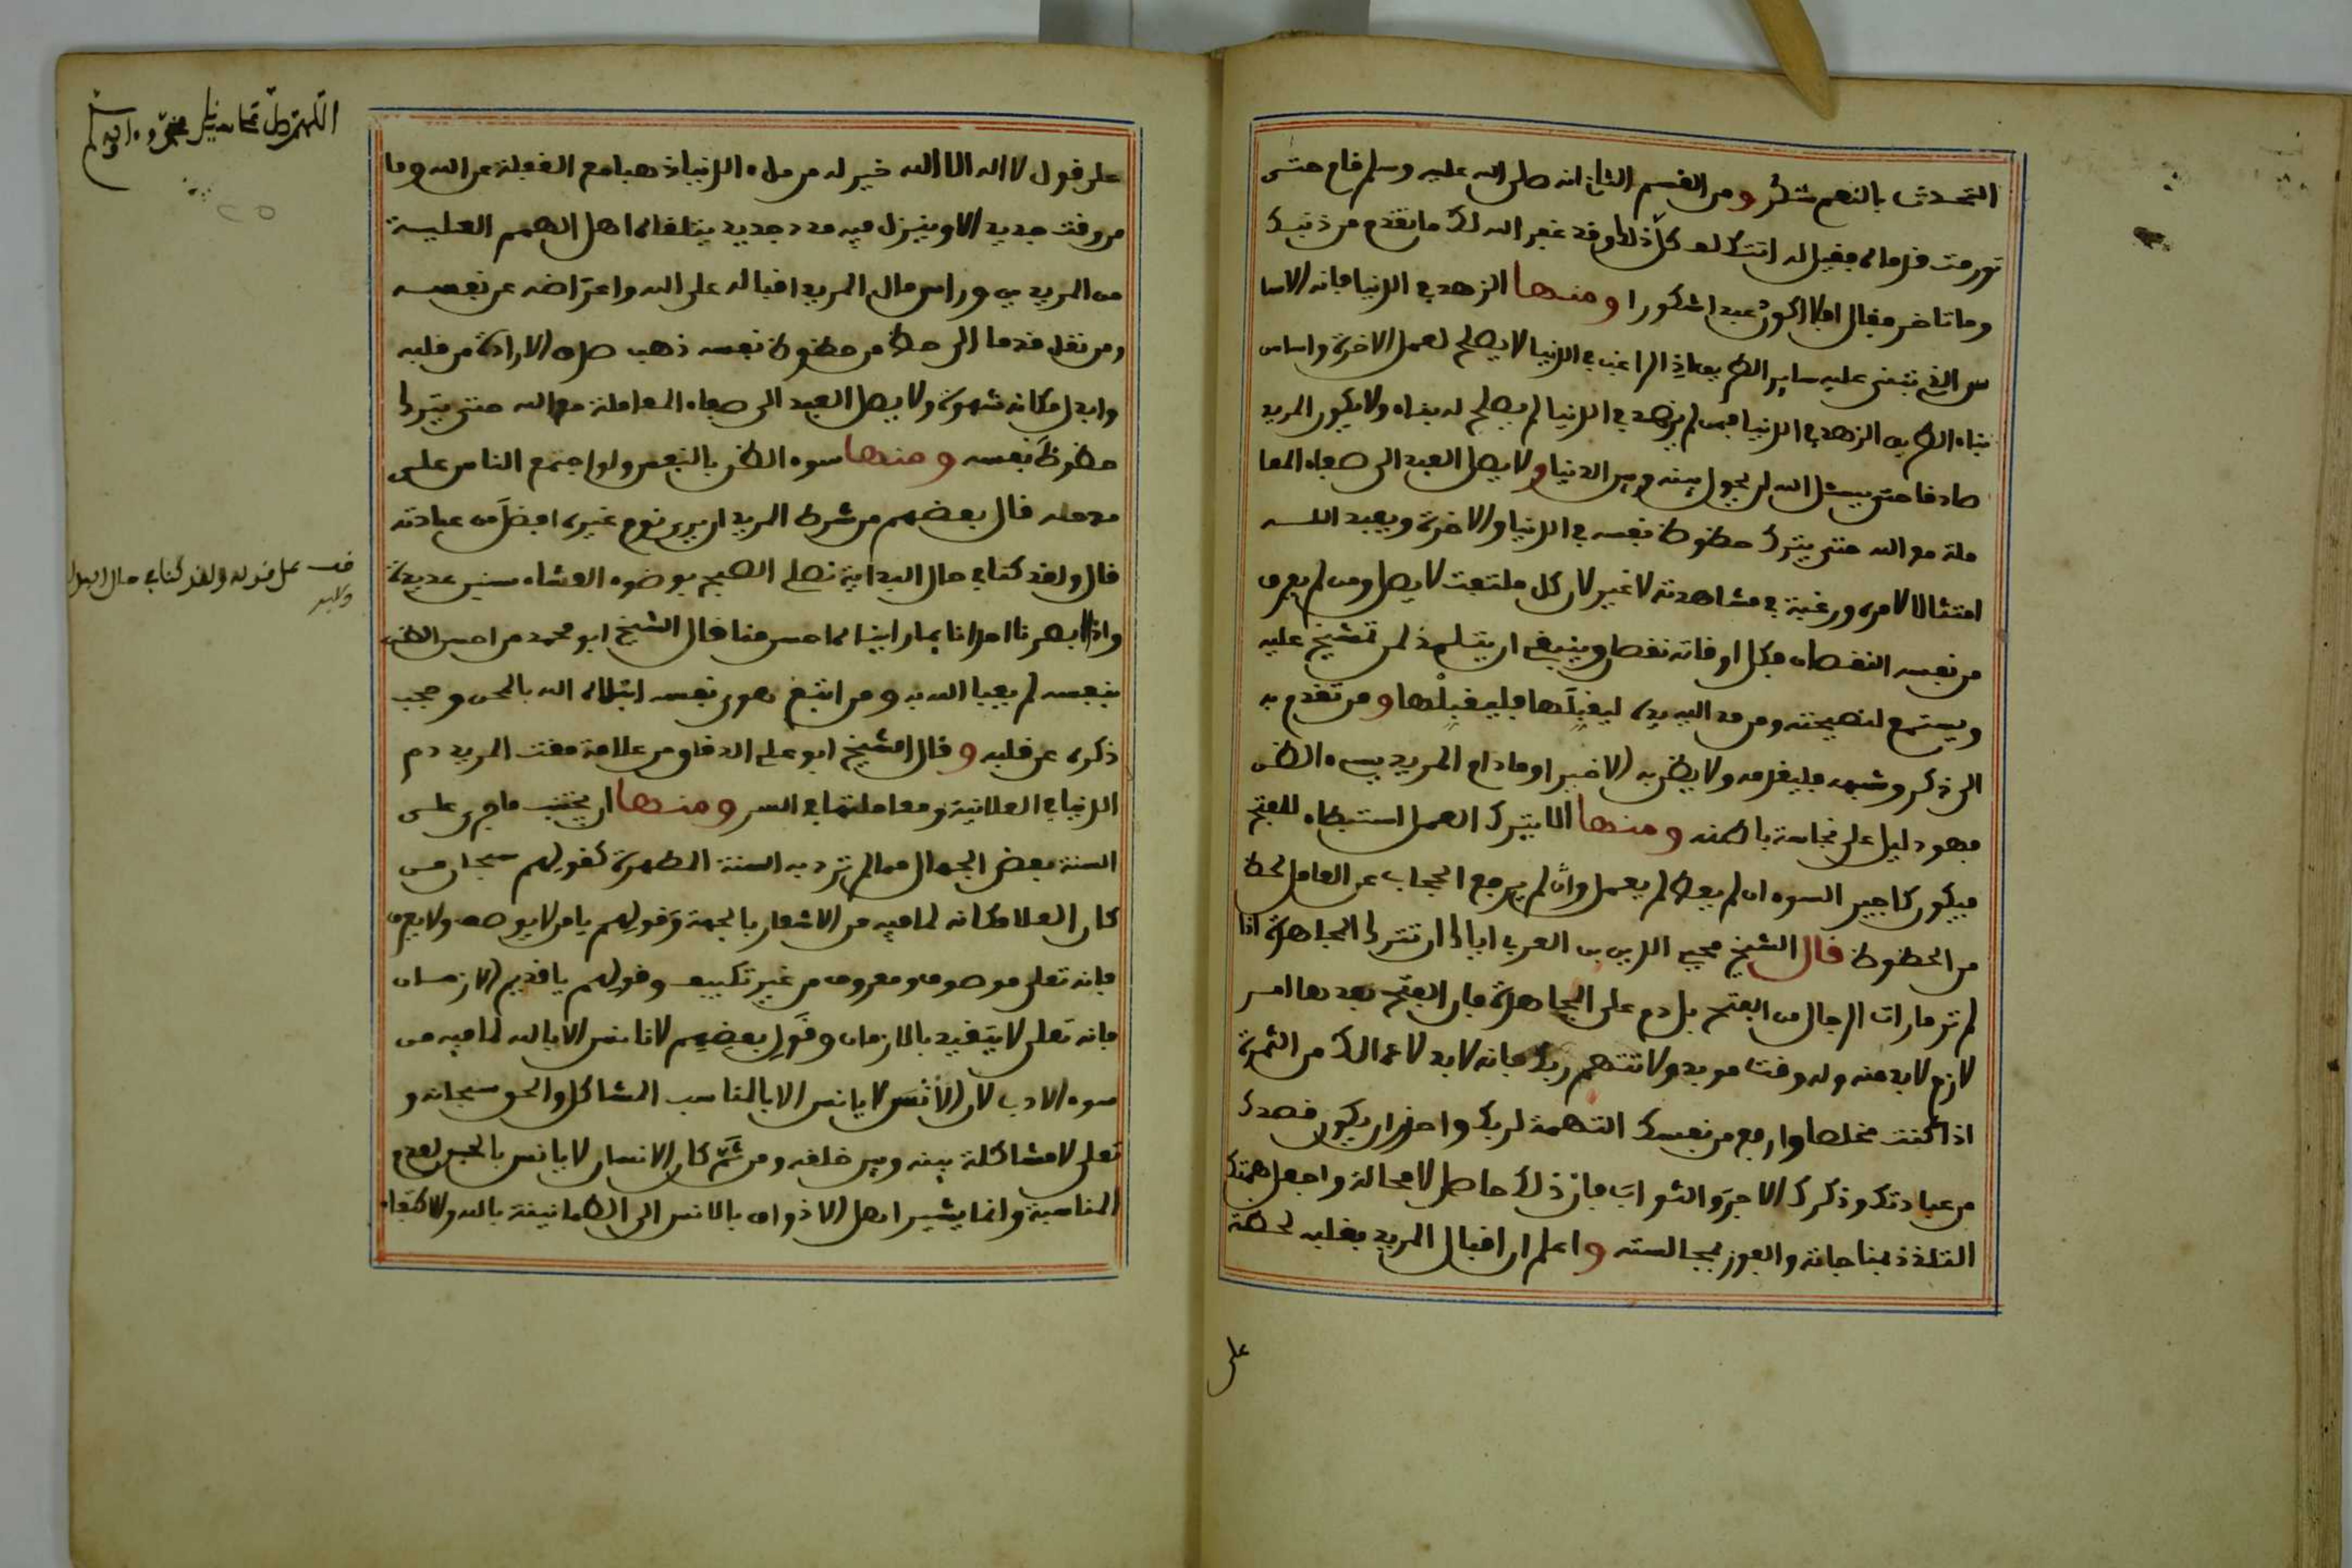 التحدث بالنعم شكر ومن القسم الثاني انه صلى الله عليه وسلم قام حتى
تورمت قدماه فقيل له اتتكلف كل ذلك وقد غفر الله لك ما تقدم من ذنبك
وما تاخر فقال افلا اكون عبدا شكورا ومنها الزهد في الدنيا فانه الاسا
س الذي تبنى عليه ساير الطريق اذ الراغب في الدنيا لا يصلح لعمل الاخرة واساس
بناء الطريق الزهد في الدنيا فمن لم يزهد في الدنيا لم يصلح له بناء ولا يكون المريد
صادقا حتى يسئل الله ان يحول بينه وبين الدنيا ولا يصل العبد الى صفاء المعا
ملة مع الله حتى يترك حظوظ نفسه في الدنيا والاخرة ويعبد الله
امتثالا لامره ورغبة في مشاهدته لا غير لان كل ملتفت لا يصل ومن لم يعرف
من نفسه النقصان فكل اوقاته نقصان وينبغي ان يتلمذ لمن تمشيخ عليه
ويستمع لنصيحته ومن مد اليه يده ليقبلها فليقبلها ومن تقدم به
الى ذكر وشبهه فليقدمه ولا يظن به الا خيرا وما دام المريد يسيء الظن
فهو دليل على نجاسة باطنه ومنها الا يترك العمل استبطاء للفتح
فيكون كاجير السوء ان لم يعط لم يعمل وان لم يرفع الحجاب عن العامل لحظ
من الحظوظ قال الشيخ محيي الدين بن العربي اياك ان تترك المجاهدة اذا
لم تر امارات الرجال من الفتح بل دم على المجاهدة فان الفتح بعدها امر
لازم لا بد منه وله وقت مويد ولا تتهم ربك فانه لا بد لاعمالك من الثمرة
اذا كنت مخلصا وارفع من نفسك التهمة لربك واحذر ان يكون قصدك
من عبادتك وذكرك الاجر والثواب فان ذلك حاصل لا محالة واجعل همتك
التلذذ بمناجاته والفوز بمجالسته واعلم ان اقبال المريد بقلبه لحظة
على
اللهم صل على سيدنا محمد وآله وسلم
على قول لا اله الا الله خير له من ملء الدنيا ذهبا مع الغفلة عن الله وما
من وقت جديد الا وينزل فيه مدد جديد يتلقاه اهل الهمم العلية
من المريدين وراس مال المريد اقباله على الله واعتراضه عن نفسه
ومن نقل قدما الى حظ من حظوظ نفسه ذهب صدق الارادة من قلبه
وابدل مكانه شهوة ولا يصل العبد الى صفاء المعاملة مع الله حتى يترك
حظوظ نفسه ومنها سوء الظن بالنفس ولو اجتمع الناس على
مدحه قال بعضهم من شرط المريد ان يرى نوم غيره افضل من عبادته
قال ولقد كنا في حال البداية نصلي الصبح بوضوء العشاء سنين عديدة
واذا ابصرنا احدا نايما راينا انه احسن منا قال الشيخ ابو محمد من احسن الظن
بنفسه لم يعبا الله به ومن اتبع هوى نفسه ابتلاه الله بالمحن وحجب
ذكره عن قلبه وقال الشيخ ابو علي الدقاق من علامة مقت المريد ذم
الدنيا في العلانية ومعاملتها في السر ومنها ان يجتنب ما جرى على
السنة بعض الجهال مما لم ترد به السنة المطهرة كقولهم سبحان من
كان العلا مكانه لما فيه من الاشعار بالجهة وقولهم يا من لا يوصف ولا يعرف
فانه تعلى موصوف ومعروف من غير تكييف وقولهم يا قديم الازمان
فانه تعلى لا يتقيد بالازمان وقول بعضهم لا نانس الا بالله لما فيه من
سوء الادب لان الانس لا يانس الا بالمناسب المشاكل والحق سبحانه و
تعلى لا مشاكلة بينه وبين خلقه ومن ثم كان الانسان لا يانس بالجن لعدم
المناسبة وانما يشير اهل الاذواق بالانس الى الطمانينة بالله والاكتفاء
قف على قوله ولقد كنا في حال البداية